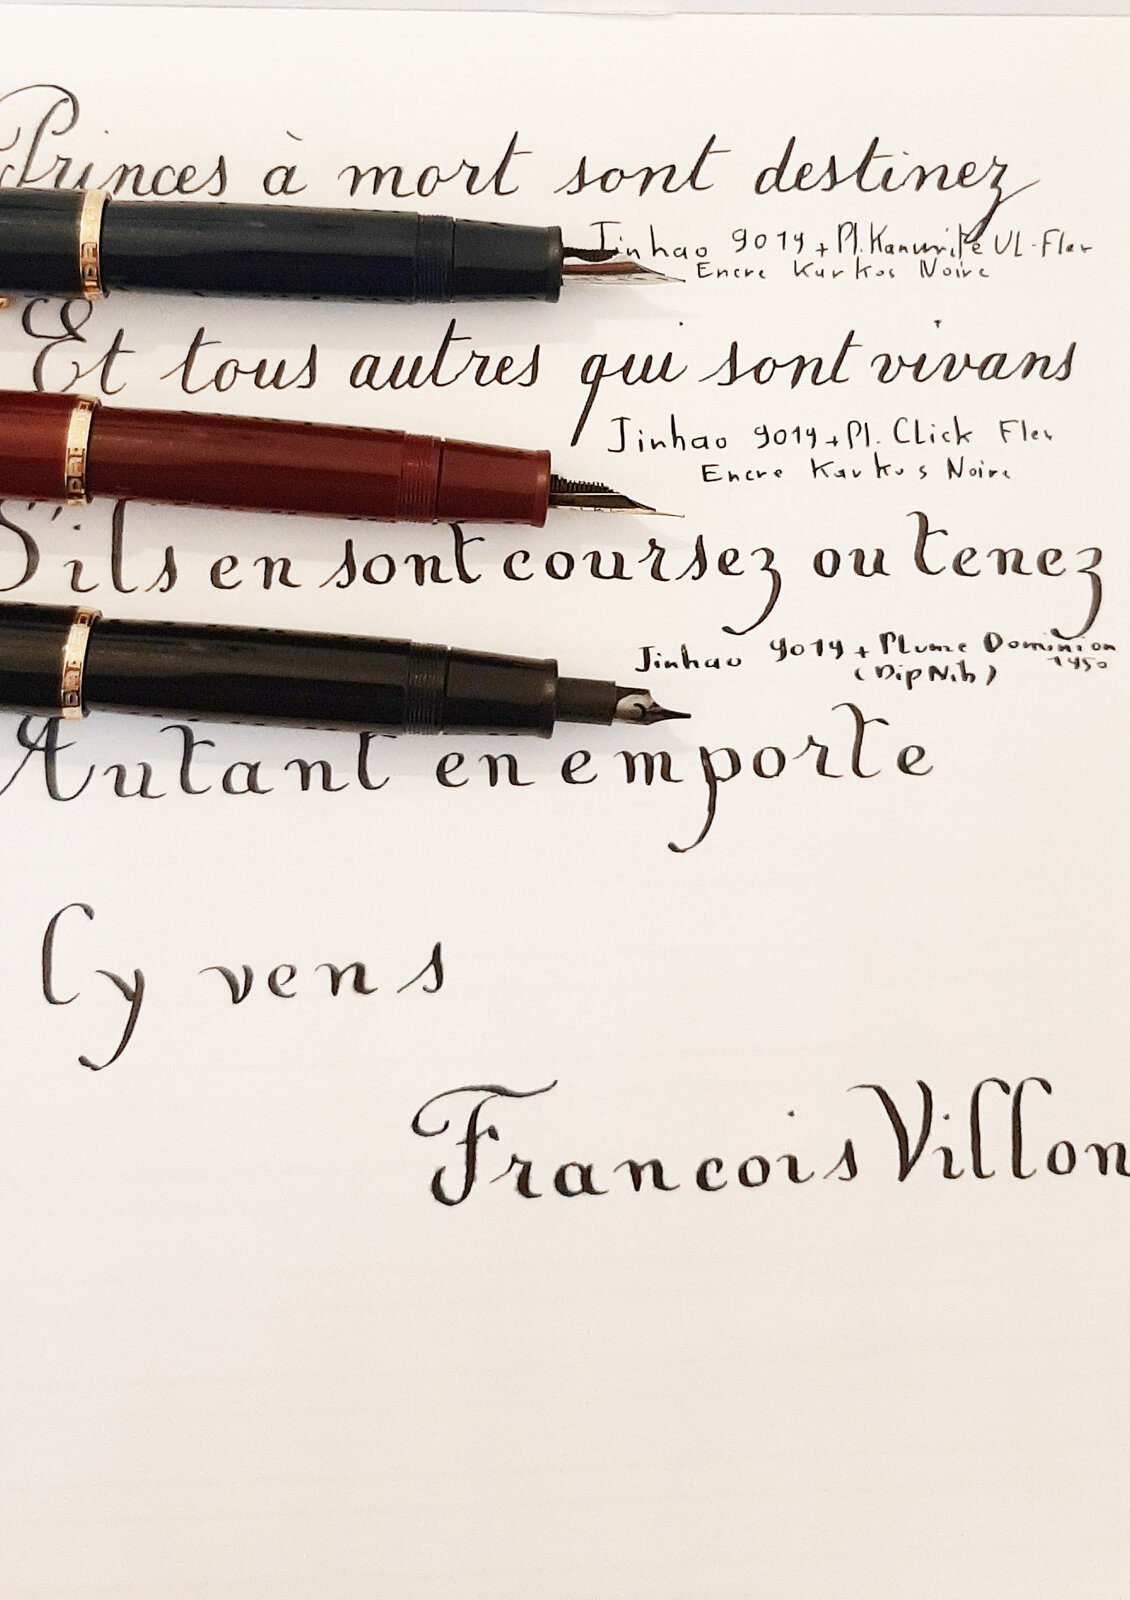 Princes à mort sont destinez
Jinhao 9019 + Pl. Kanwrite UL-Flex
Encre Karkos Noire
Et tous autres qui sont vivans
Jinhao 9019 + Pl. Click Flex
Encre Karkos Noire
S'ils en sont coursez ou tenez
Jinhao 9019 + Plume Dominion
1450
(Dip Nib)
Autant en emporte
Cy vens
Francois Villon